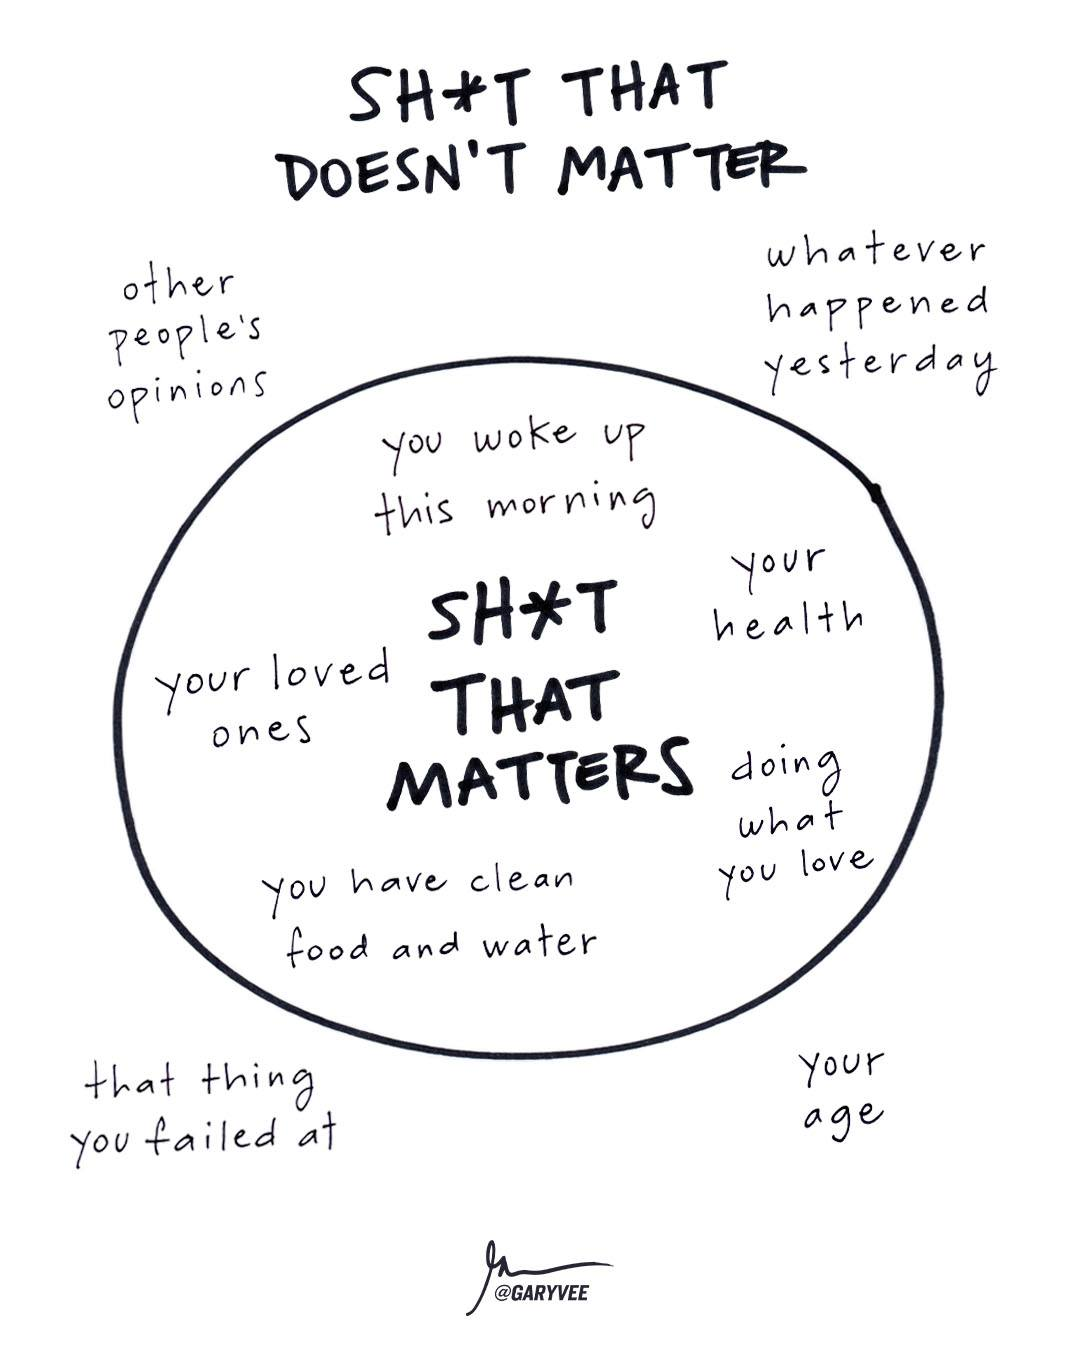 SH*T THAT
DOESN'T MATTER
other
people's
opinions
whatever
happened
yesterday
you woke up
this morning
your
health
SH*T
THAT
MATTERS
your loved
ones
doing
what
you love
you have clean
food and water
that thing
you failed at
your
age
@GARYVEE